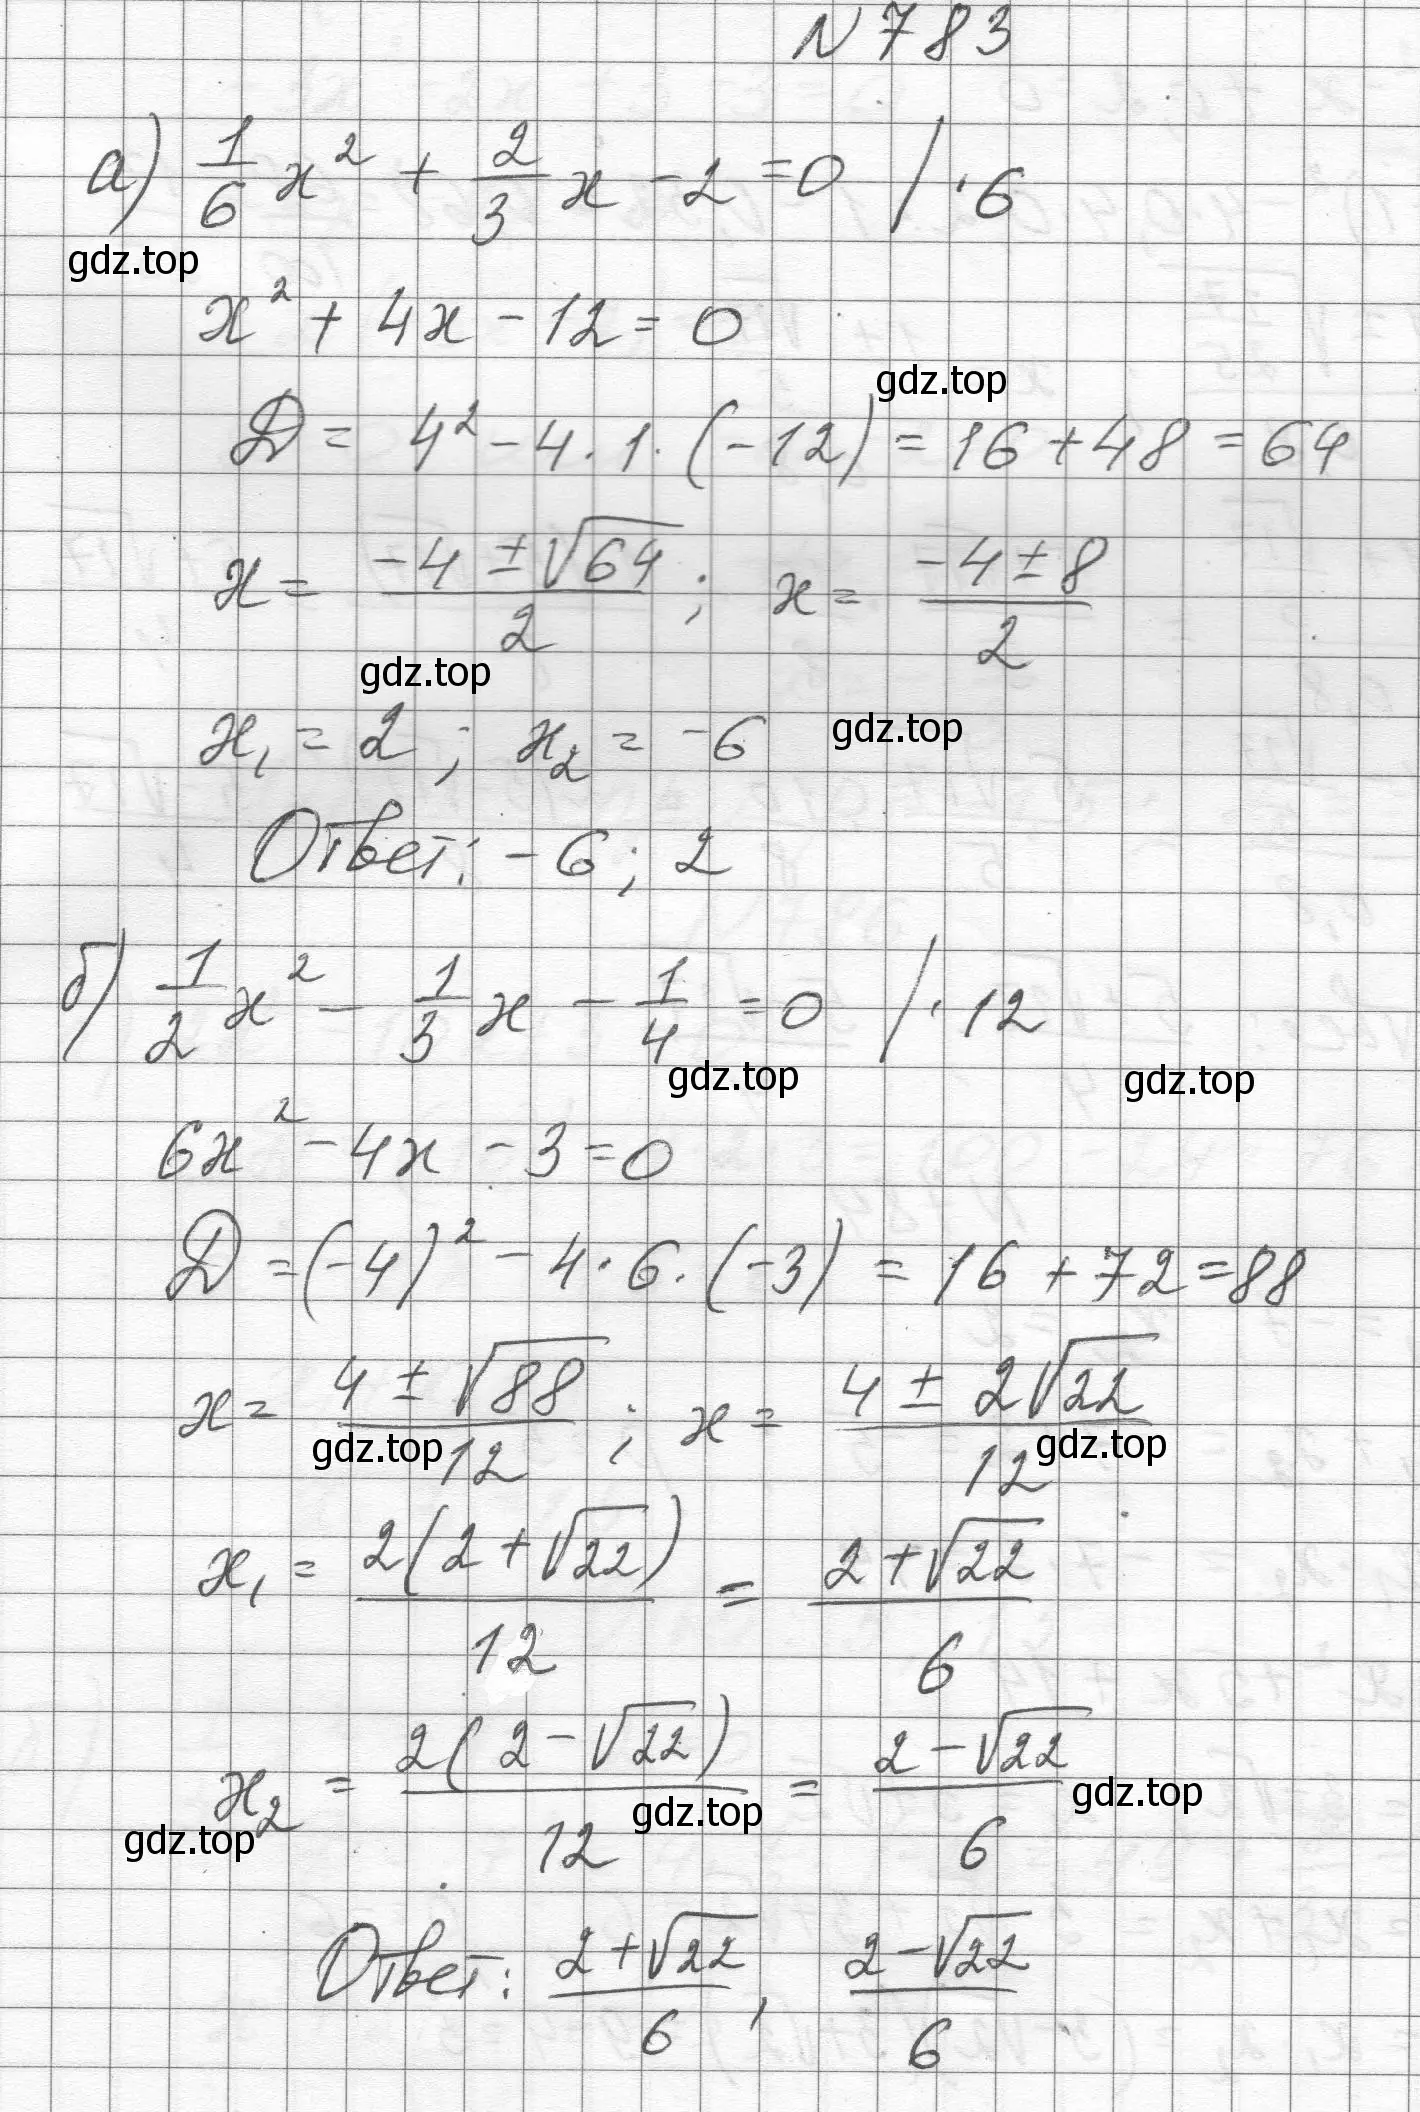 N 783
а) 1/6 x² + 2/3 x - 2 = 0 / · 6
gdz.top
x² + 4x - 12 = 0
gdz.top
D = 4² - 4 · 1 · (-12) = 16 + 48 = 64
x = (-4 ± √64)/2 ; x = (-4 ± 8)/2
gdz.top
x₁ = 2 ; x₂ = -6
gdz.top
Ответ: -6 ; 2
б) 1/2 x² - 1/3 x - 1/4 = 0 / · 12
gdz.top gdz.top
6x² - 4x - 3 = 0
D = (-4)² - 4 · 6 · (-3) = 16 + 72 = 88
x = (4 ± √88)/12 ; x = (4 ± 2√22)/12
gdz.top gdz.top
x₁ = 2(2 + √22)/12 = (2 + √22)/6
x₂ = 2(2 - √22)/12 = (2 - √22)/6
gdz.top gdz.top gdz.top
Ответ: (2 + √22)/6 , (2 - √22)/6